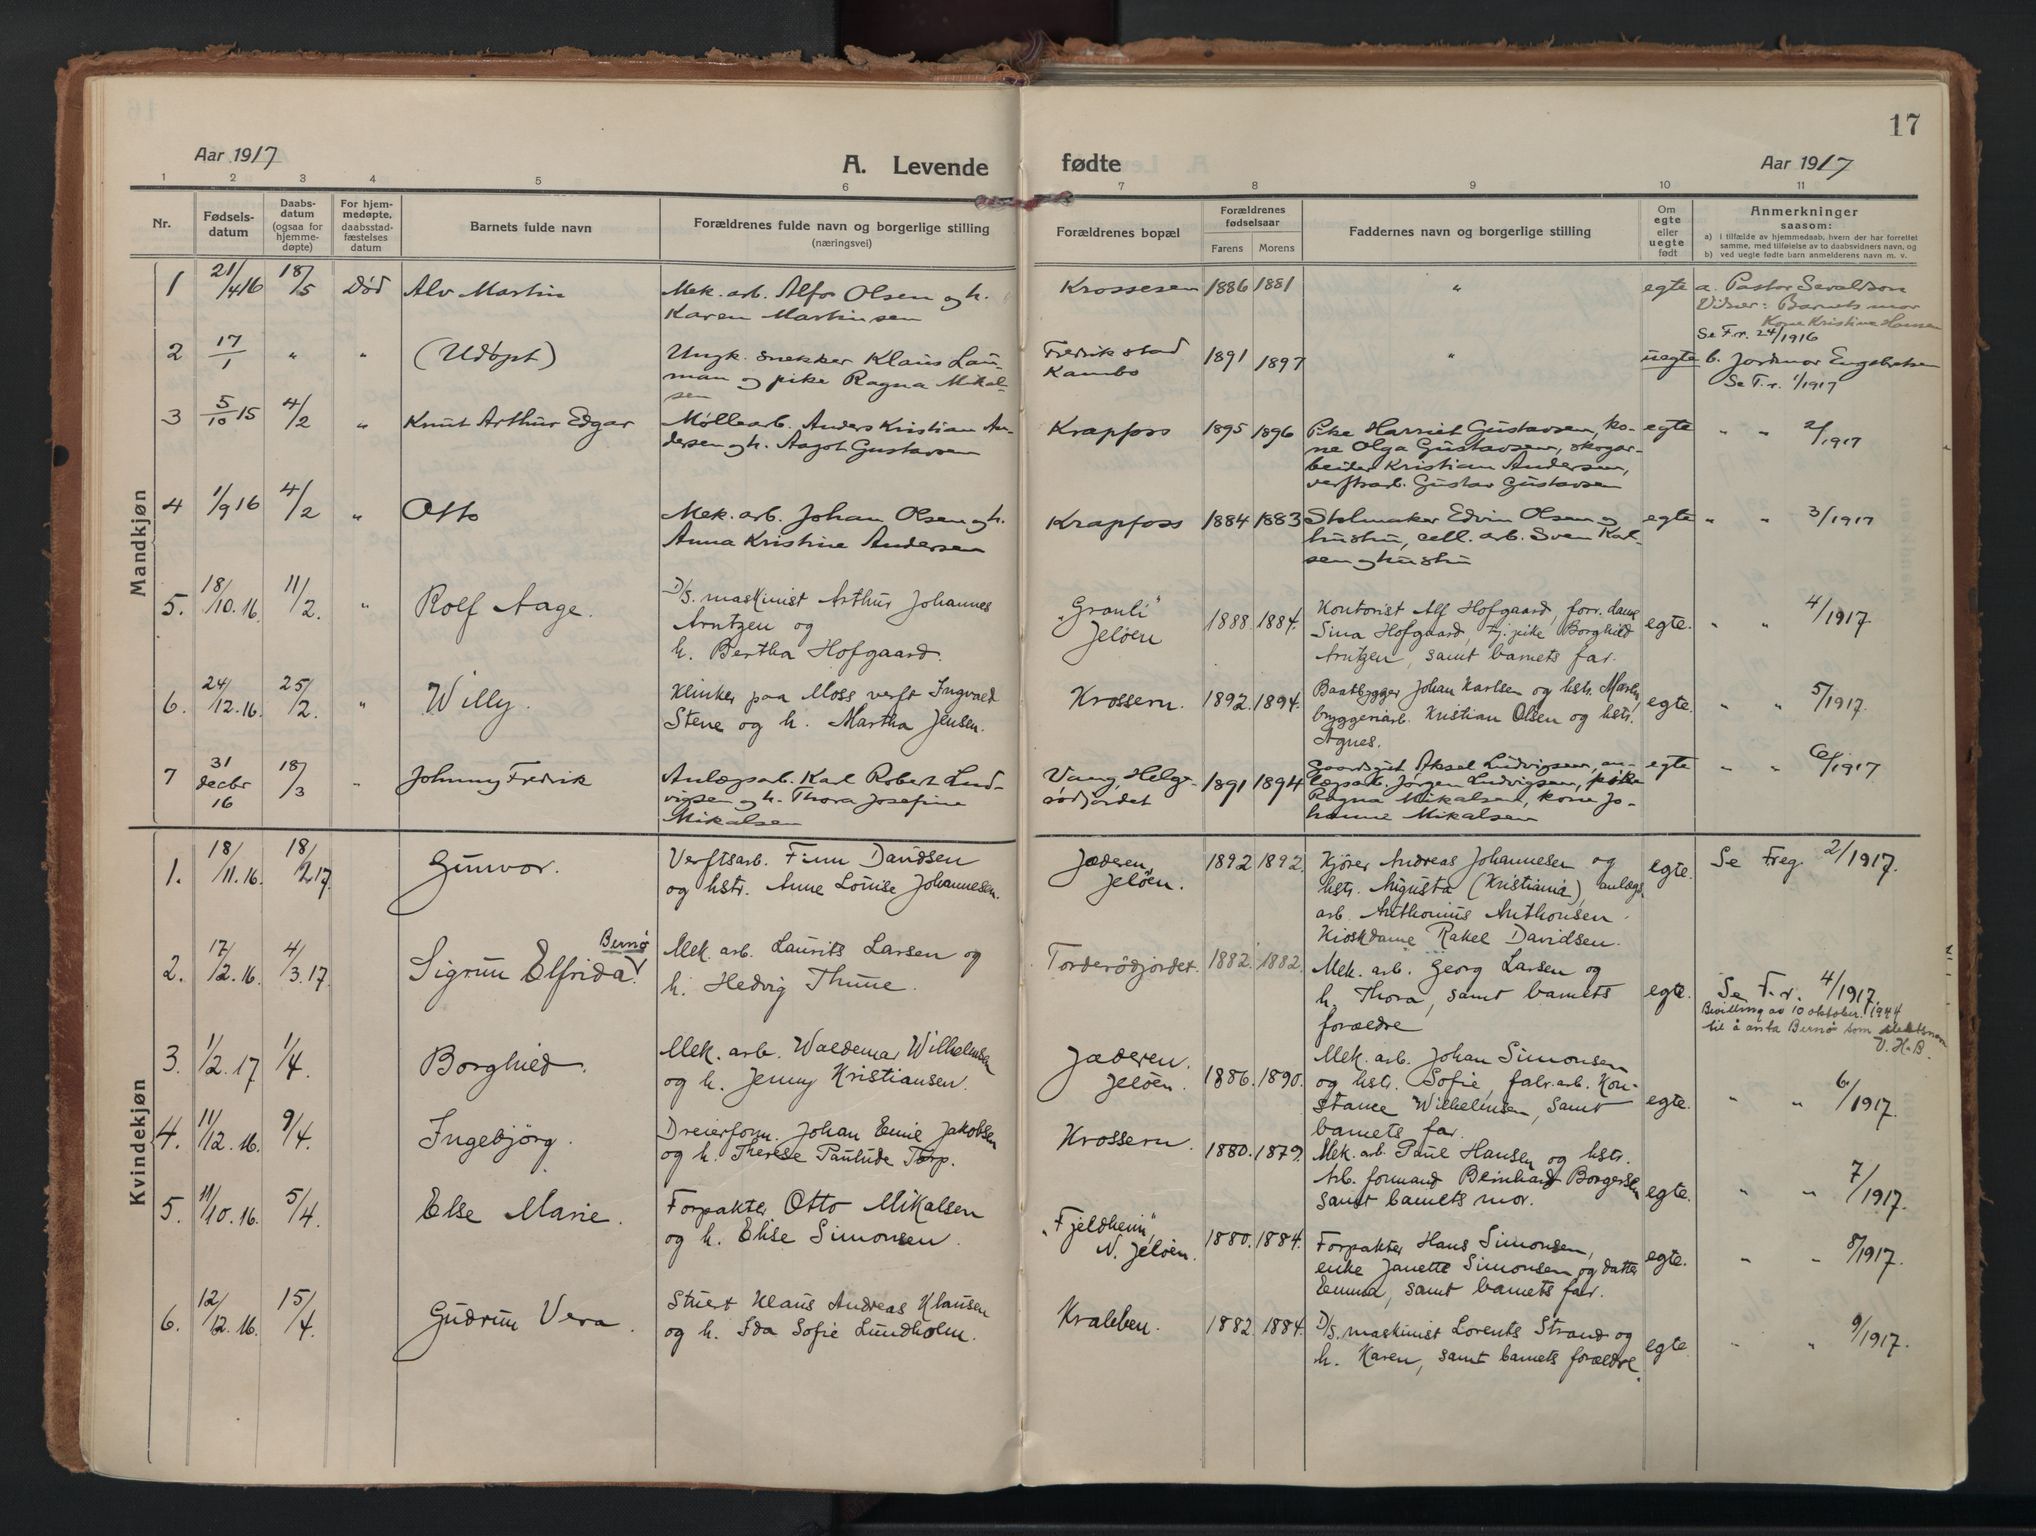 17
Aar 1917
A. Levende
fødte
Aar 1917
1 2 3 4 5 6 7 8 9 10 11
Nr.
Fødsels-
datum
Daabs-
datum
(ogsaa for
hjemme-
døpte)
For hjem-
medøpte,
daabsstad-
fæstelses
datum
Barnets fulde navn
Forældrenes fulde navn og borgerlige stilling
(næringsvei)
Forældrenes bopæl
Forældrenes
fødselsaar
Farens Morens
Faddernes navn og borgerlige stilling
Om
egte
eller
uegte
født
Anmerkninger
saasom:
a) i tilfælde av hjemmedaab, hvem der har forrettet
samme, med tilføielse av to daabsvidners navn, og
b) ved uegte fødte barn anmelderens navn m. v.
Mandkjøn
1 21/4 16 18/5 Død Alv Martin
Mek. arb. Alfor Olsen og h.
Karen Martinsen
Krossesen 1886 1881 " egte
a. Pastor Sevaldson
Vidner: Barnets mor
Kone Kristine Hansen
Se F.r. 24/1916
2 17/1 " " (Udøpt)
Ungk. snekker Klaus Lau-
man og pike Ragna Mikal-
sen
Fredrikstad
Kambo
1891 1897 " uegte
b. Jordmor Engebretsen
Se F.r. 1/1917
3 5/10 15 4/2 " Knut Arthur Edgar
Møllearb. Anders Kristian An-
dersen og h. Aagot Gustavsen
Krapfoss 1895 1896
Pike Harriet Gustavsen, ko-
ne Olga Gustavsen, skogar-
beider Kristian Andersen,
verftsarb. Gustav Gustavsen
egte " " 2/1917
4 1/9 16 4/2 " Otto
Mek. arb. Johan Olsen og h.
Anna Kristine Andersen
Krapfoss 1884 1883
Stolmaker Edvin Olsen og
hustru, cell. arb. Sven Karl-
sen og hustru
egte " " 3/1917
5. 18/10. 16 11/2. " Rolf Aage.
D/s. maskinist Arthur Johannes
Arntzen og
h. Bertha Hofgaard.
"Granli"
Jeløen
1888. 1884.
Kontorist Alf Hofgaard, forr. dame
Sina Hofgaard, tj. pike Borghild
Arntzen, samt barnets far.
egte. " " 4/1917.
6. 24/12. 16. 25/2. " Willy.
Klinker paa Moss verft Ingvald
Stene og h. Martha Jensen.
Krossern. 1892. 1894.
Baatbygger Johan Karlsen og hstr. Marta,
bryggeriarb. Kristian Olsen og hstr.
Agnes.
egte. " " 5/1917.
7 31 decbr 16 18/3 " Johnny Fredrik
Anlægsarb. Karl Robert Lud-
vigsen og h. Thora Josefine
Mikalsen
Vang, Helge-
rødjordet
1891 1894
Gaardsgut Aksel Ludvigsen, an-
lægsarb. Jørgen Ludvigsen, pike
Ragna Mikalsen, kone Jo-
hanne Mikalsen
egte " " 6/1917
Kvindekjøn
1. 18/11. 16. 18/2 17. Gunvor.
Verftsarb. Finn Davidsen
og hstr. Anne Louise Johannesen.
Jæderen,
Jeløen.
1892 1892.
Kjører Andreas Johannesen og
hstr. Augusta (Kristiania), anlægs
arb. Anthonius Anthonsen.
Kioskdame Rakel Davidsen.
egte. Se Freg. 2/1917.
2. 17/12. 16. 4/3. 17. Sigrun Elfrida Bernø
Mek. arb. Laurits Larsen og
h. Hedvig Thune.
Torderødjordet. 1882. 1882.
Mek. arb. Georg Larsen og
h. Thora, samt barnets
forældre
egte. Se F.r. 4/1917.
Bevilling av 10 oktober 1944
til å anta Bernø som slektsnavn
V. H-B.
3. 1/2. 17 1/4. Borghild.
Mek. arb. Waldemar Wilhelmsen
og h. Jenny Kristiansen.
Jæderen.
Jeløen.
1886. 1890.
Mek. arb. Johan Simonsen
og hstr. Sofie, fabr. arb. Kon-
stance Wilhelmsen, samt
barnets far.
egte. " " 6/1917.
4. 11/12. 16. 9/4. Ingebjørg.
Dreierform. Johan Emil Jakobsen
og h. Therese Paulude Torp.
Krossern. 1880. 1879.
Mek. arb. Paul Hansen og hstr.
Arb. formand Bernhard Borgersen
samt barnets mor.
egte. " " 7/1917.
5. 11/10. 16. 5/4. Else Marie.
Forpakter Otto Mikalsen
og h. Elise Simonsen.
"Fjeldheim",
N. Jeløen.
1880. 1884.
Forpakter Hans Simonsen,
enke Janette Simonsen og datter
Emma, samt barnets far.
egte. " " 8/1917.
6. 12/12. 16. 15/4. Gudrun Vera.
Stuert Klaus Andreas Klausen
og h. Ida Sofie Lundholm.
Kralben. 1882. 1884.
D/s. maskinist Lorents Strand og
h. Karen, samt barnets forældre.
egte. " " 9/1917.